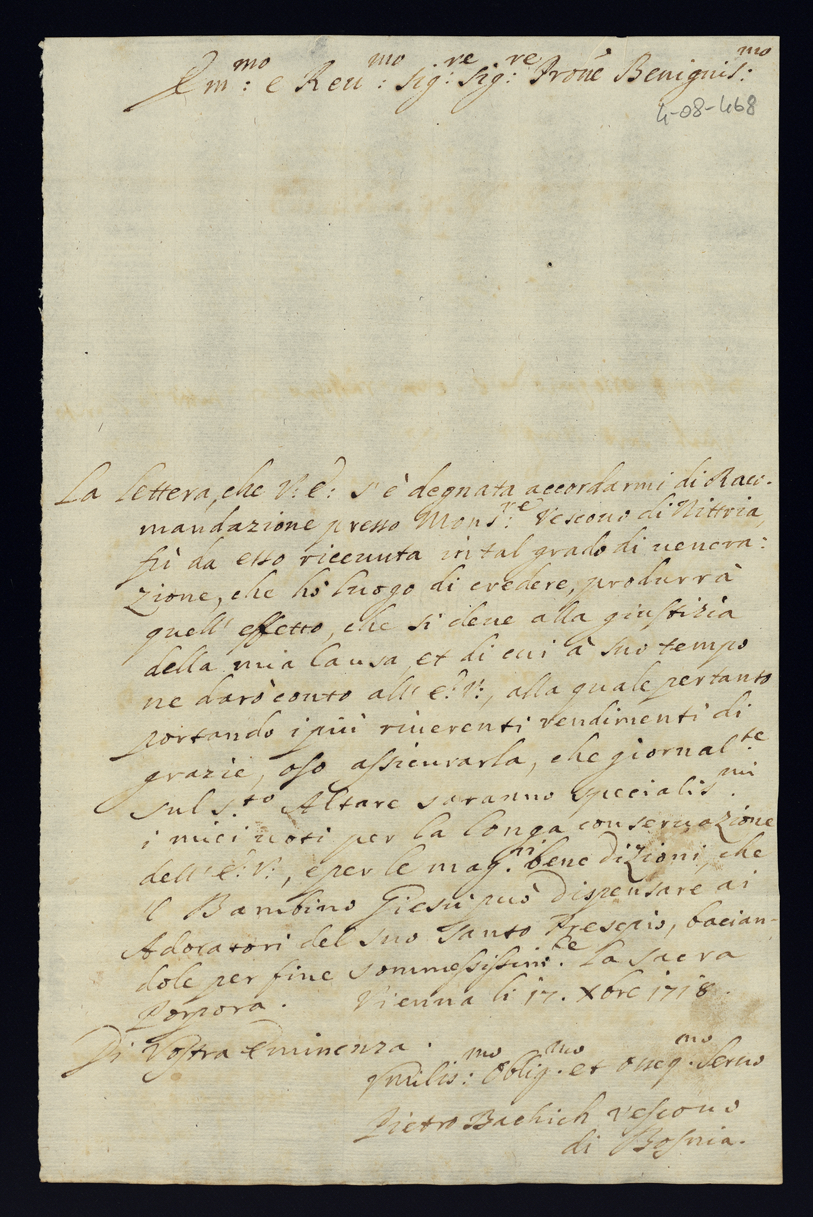 Em.mo: e Reu.mo: Sig.re: Sig.re: Proñe Benignis.mo:
4-08-468
La lettera, che V: E: s'è degnata accordarmi di Racc-
mandazione presso Mons.re: Vescouo di Nittria,
fù da esso riceuuta in tal grado di uenera:
zione, che hò luogo di credere, produrrà
quell'effetto, che si deue alla giustizia
della mia Causa, et di cui à suo tempo
ne darò conto all'E: V:, alla quale pertanto
portando i più riuerenti rendimenti di
grazie, oso assicurarla, che giornal.te
sul S.to Altare saranno specialis.mi
i miei uoti per la longa conseruazione
dell'E: V:, e per le mag.ri benedizioni, che
il Bambino Giesù può dispensare ai
Adoratori del suo Santo Presepio, bacian-
dole per fine sommessissim.te la Sacra
Porpora. Vienna li 17. Xbre 1718.
Di Vostra Eminenza.
Vmilis.mo: Oblig.mo et osseq.mo Seruo
Pietro Bachich Vescouo
di Bosnia.